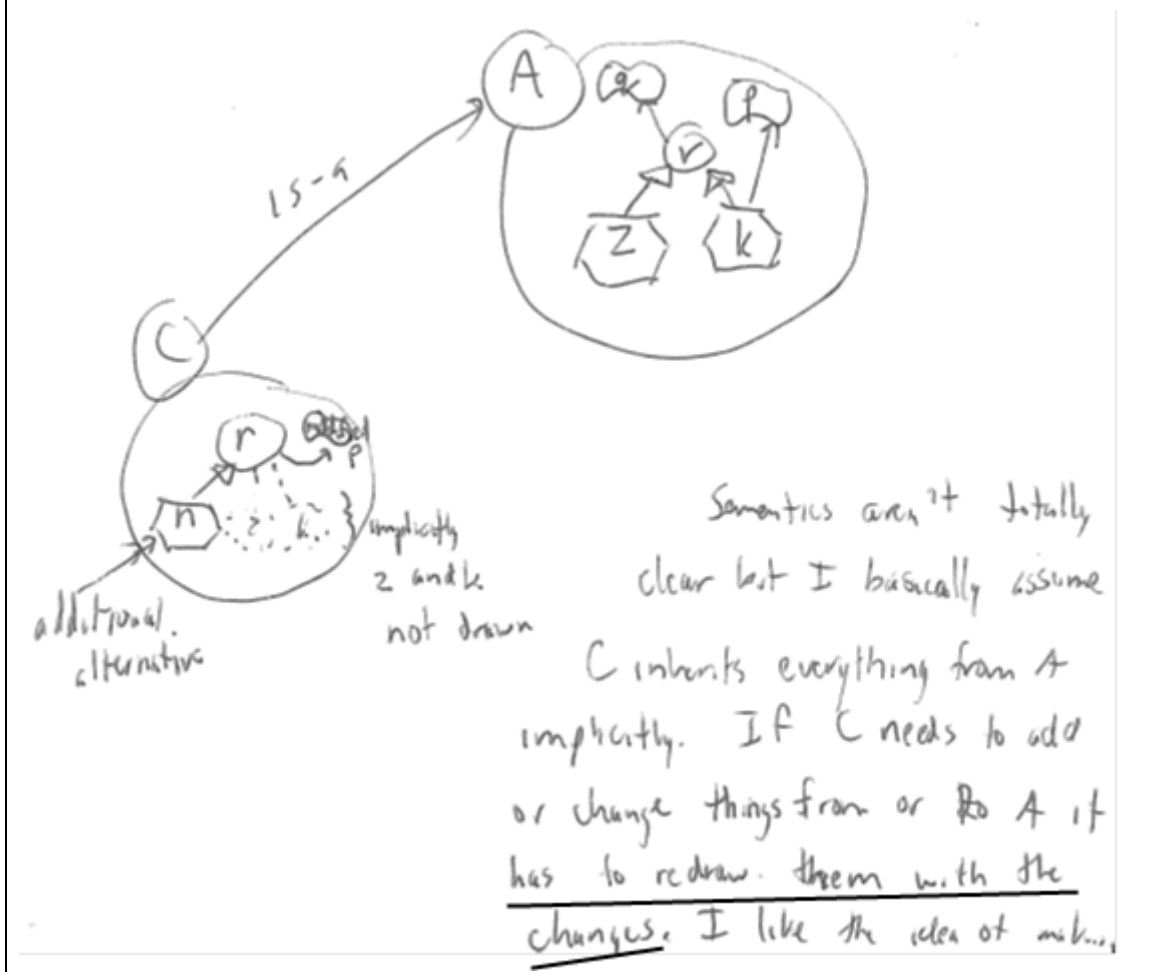 A
q
p
r
Z
k
is-a
C
r
p
n
z k
implicitly
z and k
not drawn
additional
alternative
Semantics aren't totally
clear but I basically assume
C inherits everything from A
implicitly. If C needs to add
or change things from or to A it
has to redraw them with the
changes. I like the idea of